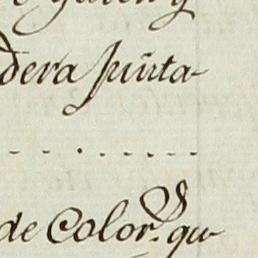 dera junta-
de Color.s qu-